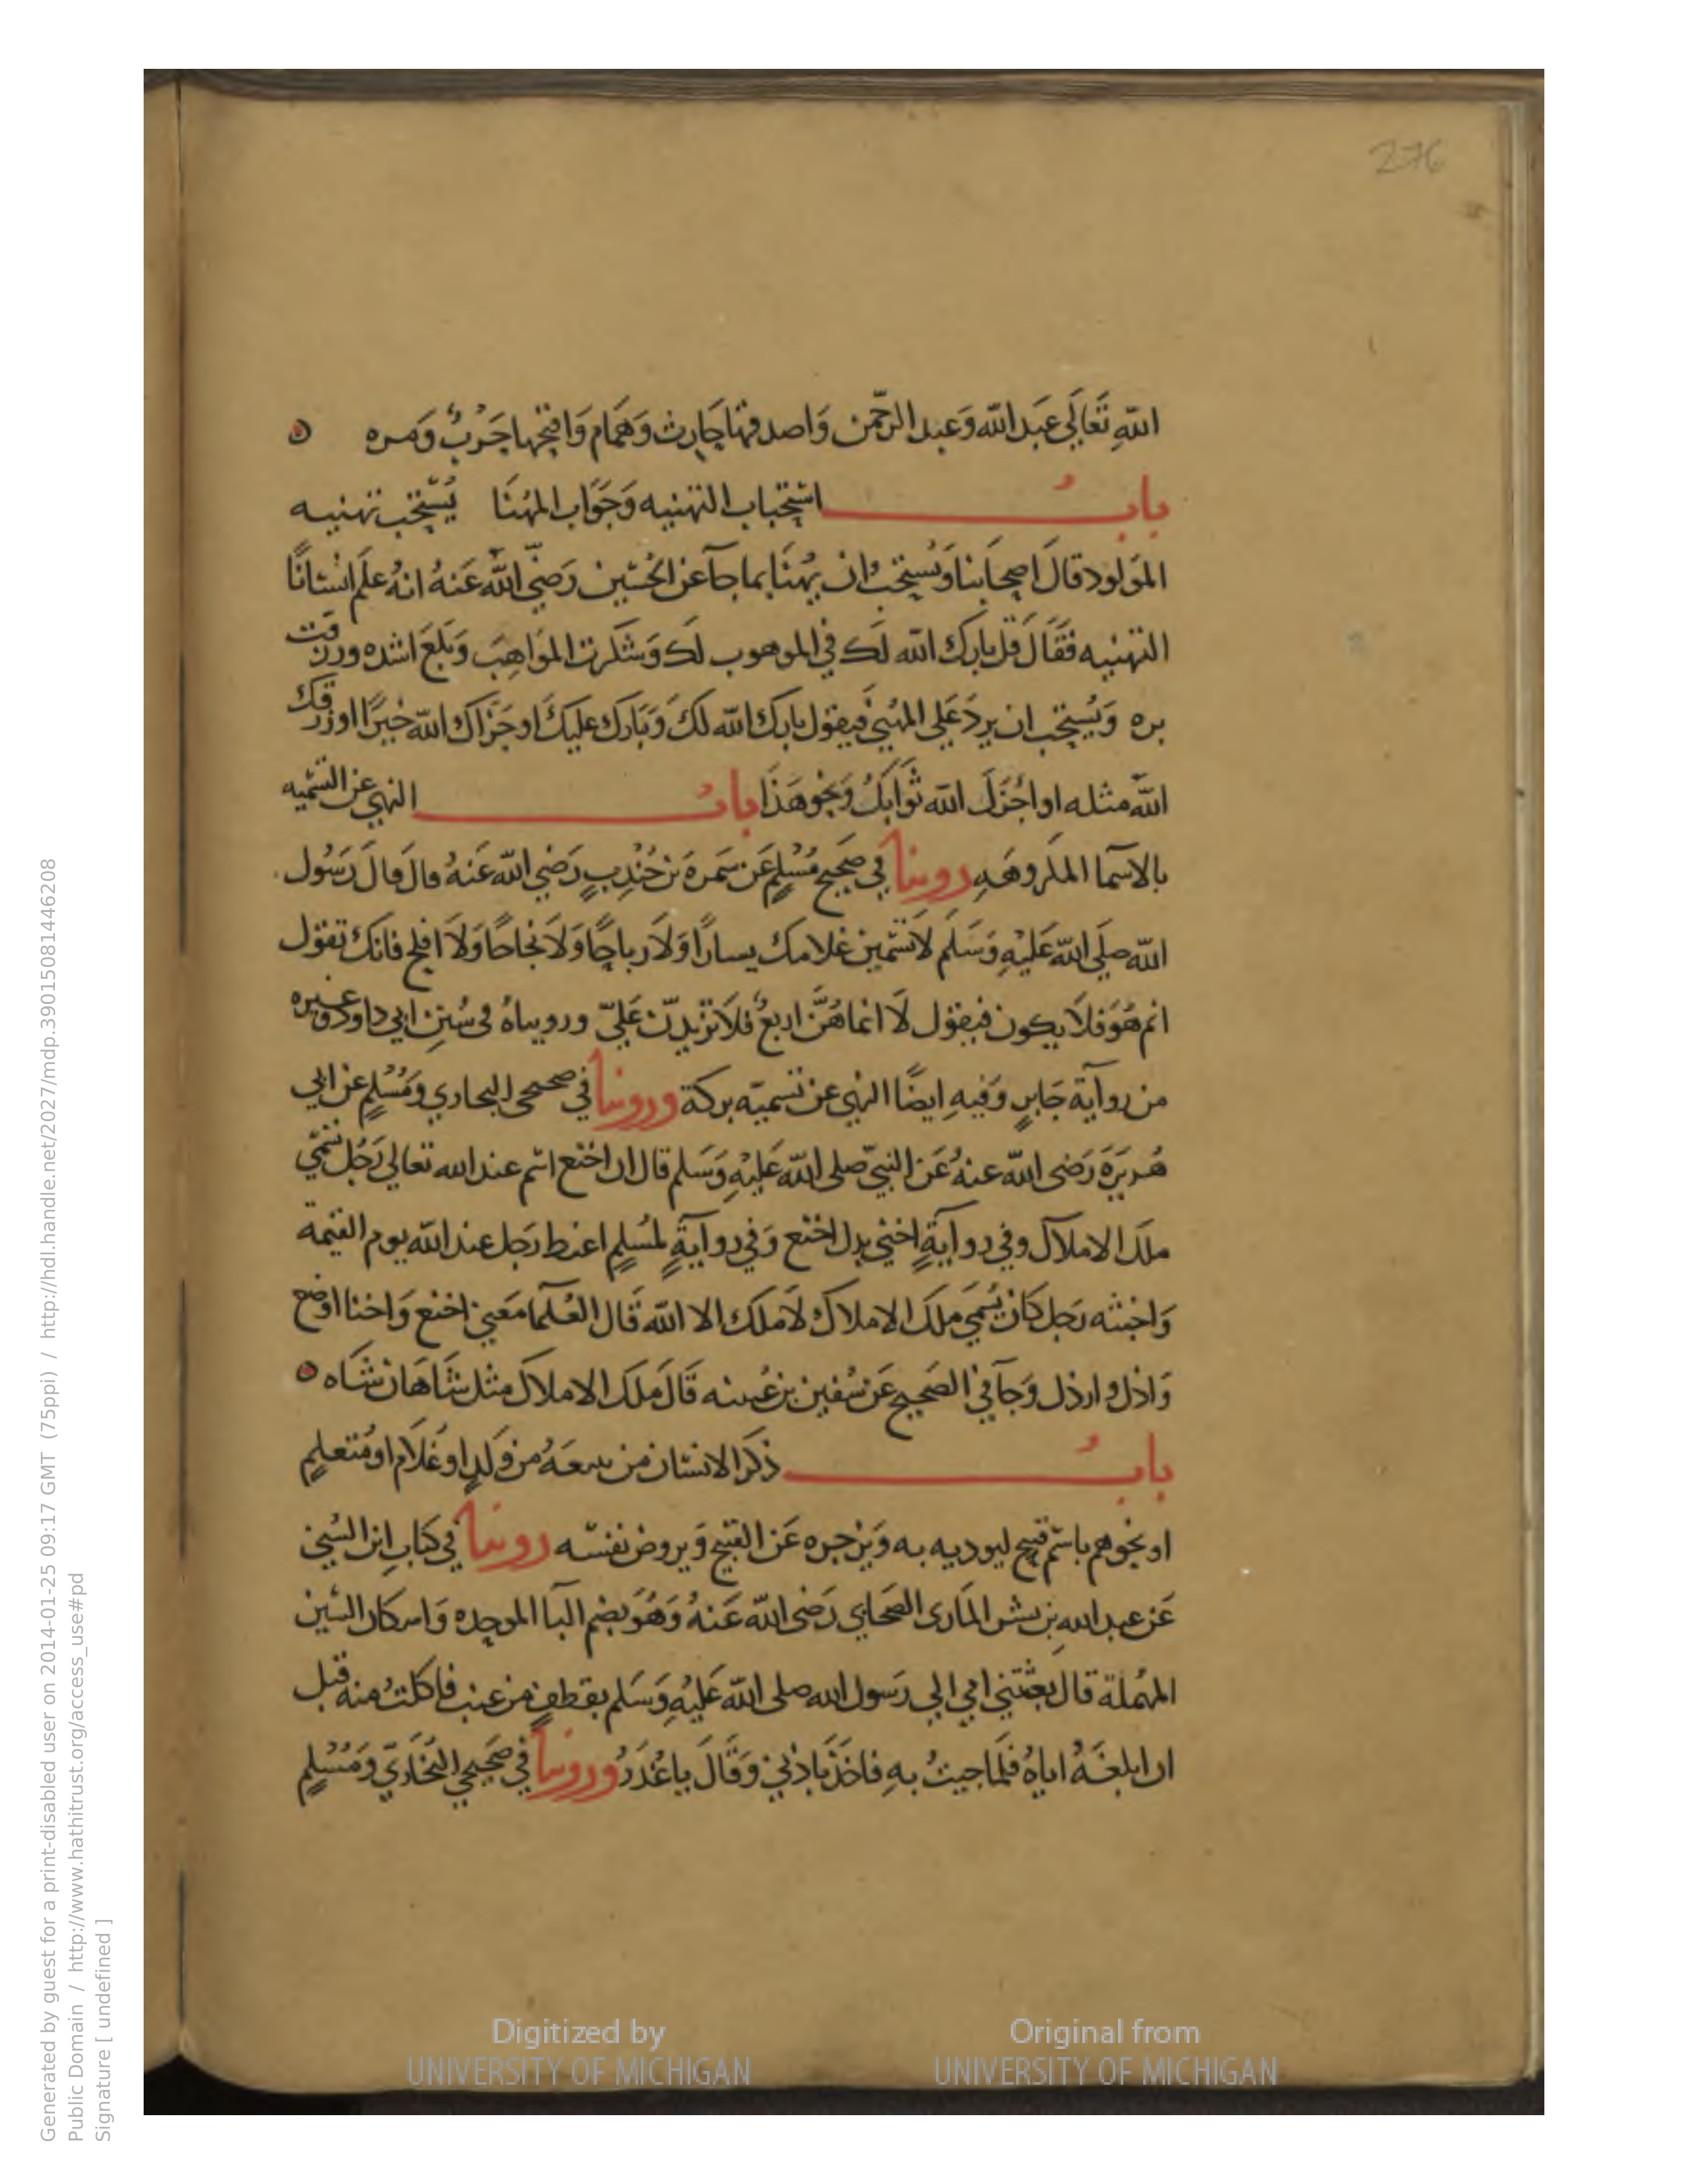 276
اللهِ تَعَالَي عَبَد الله وَعبد الرحّمن وَاصدقها حَارث وَهَمام وَاقبحها حَربٌ وَمره
بابُ استحباب التهنيه وَجَوَاب المهُنَا يُسْتحَب تهنيه
الموَلود قالَ اصحَابنا وَيُستحبُ ان يهُنَا بما جآ عن الحُسَين رَضيّ الله عَنهُ انهُ علَم انْسَانًا
التهنيه فقَالَ قل بارك الله لَك في الموهوب لَك وَشكرت الموَاهِبَ وَبَلَغَ اشده ورزقت
بره وَيُستحَب ان يردَ عَلي المهُنيّ فيقول بارك الله لكَ وَبَارك عليكَ او جَزاك الله خيرًا او رزقك
الله مثله او اجْزَلَ الله ثوَابَكُ وَنحو هَذَا بابُ النهي عن التسميه
بالاسمَا المكروهَهِ روينا في صَحيح مُسْلِم عَن سَمره بَن جُنْدبٍ رَضي الله عَنهُ قالَ قالَ رَسُول
الله صلَي الله عَليْهِ وَسَلم لا تسَمين غلامك يسارًا وَلاَ رباحًا وَلاَ نجاحًا وَلاَ افلح فانكَ تقول
اثم هُوَ فلا يكون فيقول لاَ انما هُنَّ اربعٌ فلا تزيدنّ عَليّ ورويناهُ في سُننِ ابي داود وغيره
من روآيَة جَابرٍ وَفيهِ ايضًا النهي عن تسميَه بركة وروينا في صحيحي البخاري وَمُسْلِم عن ابي
هُريَرَةَ رَضي الله عنهُ عَن النبيّ صلي الله عَليْهِ وَسَلم قال ان اخنع اسْم عند الله تعالي رَجُل تسَمّي
ملَك الاملاك وفي روآيَةٍ اخني بدل اخنع وَفي روآيَةٍ لمُسلِم اغيظ رَجل عند الله يوم القيمة
وَاخبثه رَجل كانَ يُسَمي ملَكَ الاملاك لاَ ملك الا الله قَال العُلمَآ مَعني اخنع وَاخنا اوضع
وَاذل وارذل وَجآ في الصَحيح عَن سُفين بن عُيينه قَالَ ملَك الاملاكَ مثل شَاهَان شَاه
بابُ ذكر الانسَان من يتبعَهُ من وَلدٍ او غُلاَم او مُتعلِمٍ
او نحوهم باسْم قبيح ليوديه به وَيَزجره عَن القبيح وَيروض نفسَه روينا في كتابِ ابن السُني
عَن عبد الله بن بسْر المَازي الصَحابي رَضي الله عَنهُ وَهُوَ بضم البآ الموحده وَاسكان السَين
المهملة قال بعثتني امي الي رَسول الله صلي الله عَليْهِ وَسَلم بقطفٍ من عنب فاكلتُ منه قبل
ان ابلغَهُ اياهُ فلمَا جيتُ بهِ فاخَذَ باذني وَقَالَ يا غُدَرُ وروينا في صَحيحي البَخَاريّ وَمُسْلِم
Digitized by
UNIVERSITY OF MICHIGAN
Original from
UNIVERSITY OF MICHIGAN
Generated by guest for a print-disabled user on 2014-01-25 09:17 GMT (75ppi) / http://hdl.handle.net/2027/mdp.39015081446208
Public Domain / http://www.hathitrust.org/access_use#pd
Signature [ undefined ]